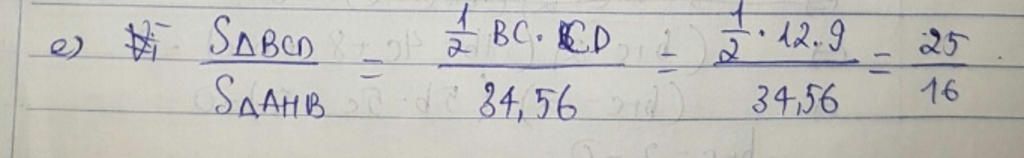 e) S△BCD / S△AHB = 1/2 BC. CD / 34,56 = 1/2 . 12.9 / 34,56 = 25/16